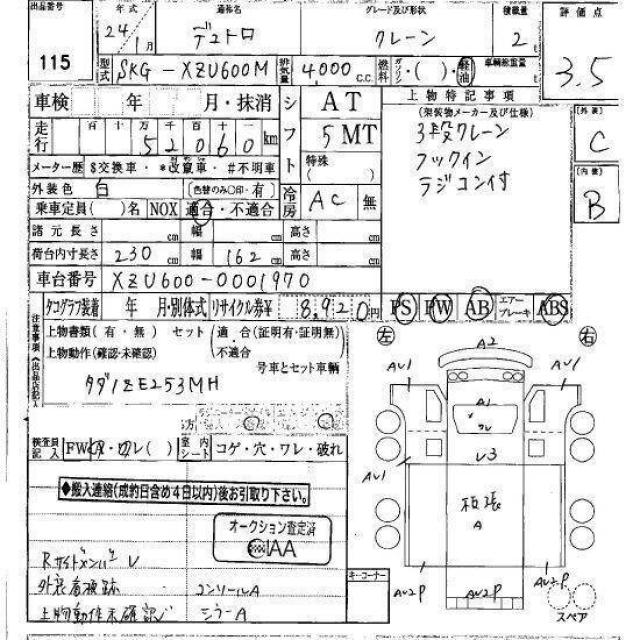 出品番号 115
年式 24/1月
通称名 デュトロ
グレード及び形状 クレーン
積載量 2 t
評価点 3.5
型式 SKG-XZU600M
排気量 4,000 C.C.
燃料 ガソリン・( )・軽油
車輌総重量 t
車検 年 月・抹消
シフト AT
5 MT
特殊 ( )
走行 百 十 万 千 百 十 km
52060
メーター歴 $交換車・*改竄車・#不明車
外装色 白 (色替のみ○印・有)
乗車定員( )名 NOX 適合・不適合
冷房 AC 無
上物特記事項
(架装物メーカー及び仕様)
3段クレーン
フックイン
ラジコン付
[外装] C
[内装] B
諸元長さ cm 幅 cm 高さ cm
荷台内寸長さ 230 幅 162 高さ cm
車台番号 XZU600-0001970
タコグラフ装着 年 月・別体式 リサイクル券¥ 8,920円
PS PW AB エアーブレーキ ABS
注意事項
上物書類(有・無) セット(適合(証明有・証明無)・不適合
上物動作(確認・未確認) 号車とセット車輌
左 右
検査員記入 FW
室内シート コゲ・穴・ワレ・破れ
◆搬入連絡(成約日含め4日以内)後お引取り下さい。
オークション査定済
IAA
Rサイドメンバー V
コンソールA
上物動作未確認
ミラーA
キーコーナー
A2
AU1 AU1
A1
ワレ
U3
AU1
板張
A
AU2P AU2P AU2P
スペア